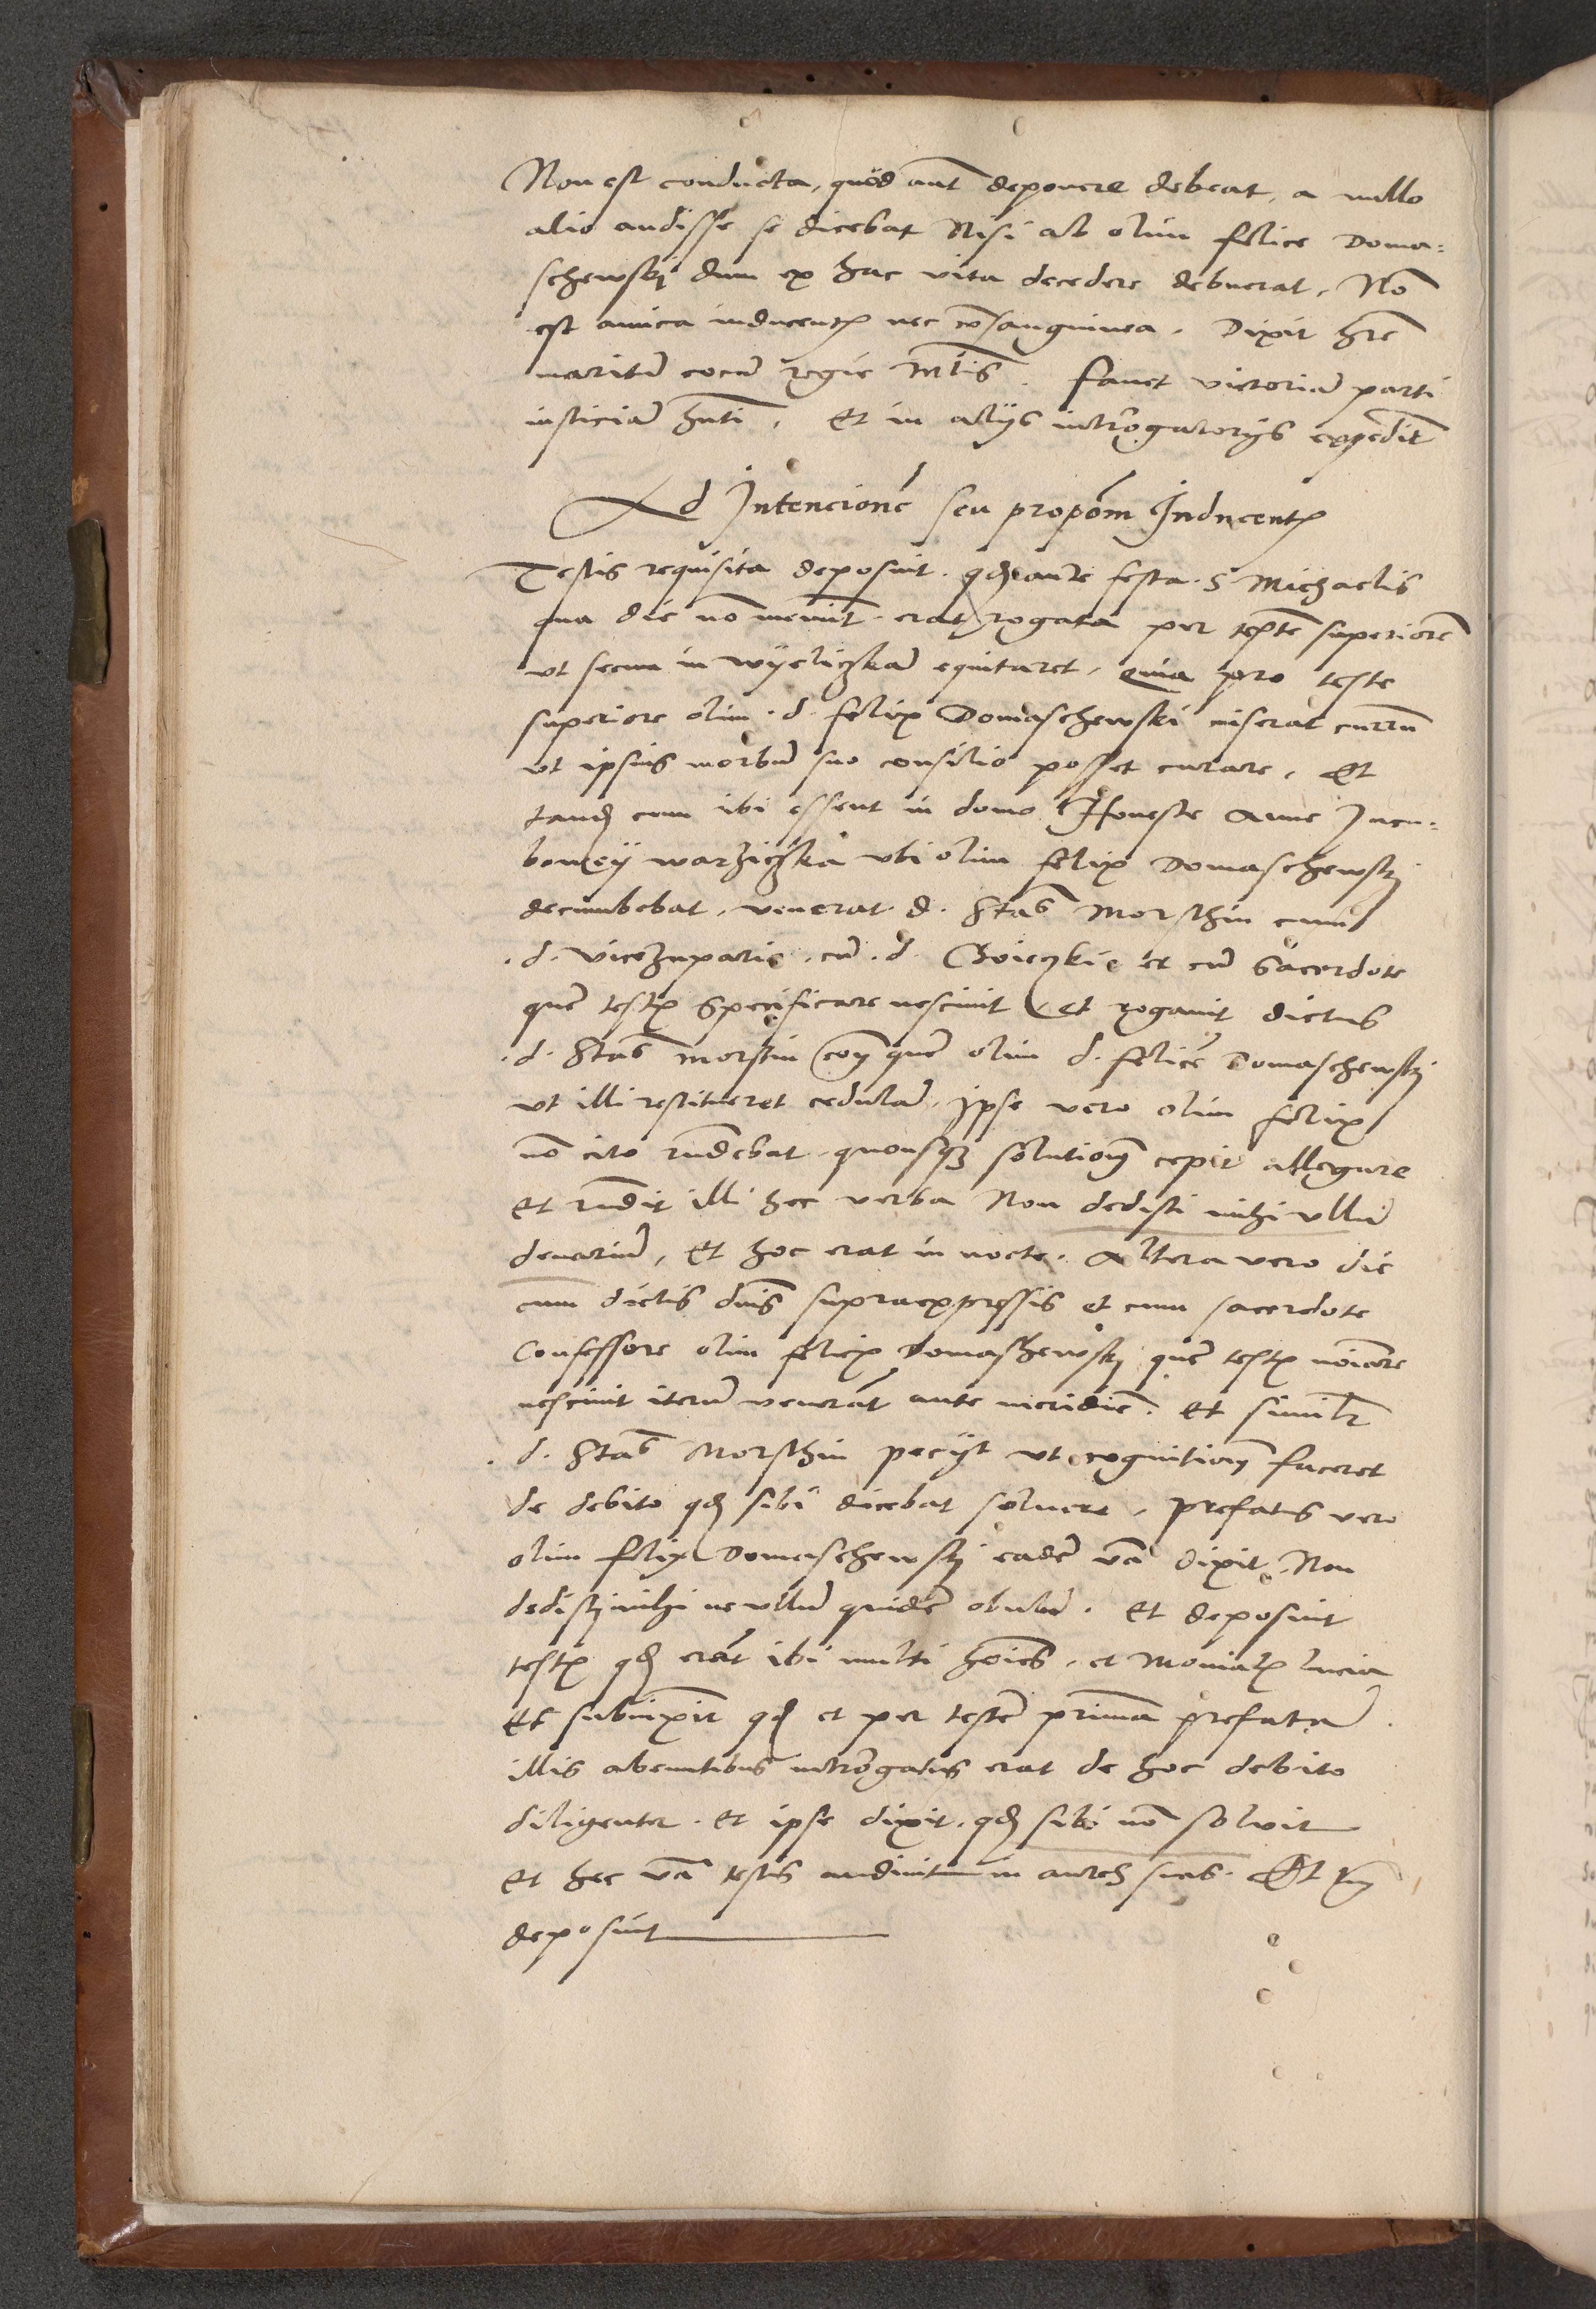 Non est conducta, quid aūt deponere debeat, a nullo
alio audisse se dicebat Nisi ab olim felice Doma:
schewskj dum ex hac vita decedere debuerat, Nō
est amica inducentꝭ nec cōsanguinea. Dixit hrē
maritū cocū regie Mtis. favet victoriā parti
iusticiā hnti, et in alijs introgatorijs expedit
Ad Intencionē seu propōm Inducentꝭ
Testis requisita deposuit. qđ ante festa. S. Michaelis
qua die nō meminit erat rogata per testē superiorē
vt secum in wyeliczkā equitaret, quia pro teste
superiore olim. d. felix Domaschewski miserat currū
vt ipsius morbū suo consilio posset curare, Et
tandē cum ibi essent in domo Honeste Anne
warziczka vbi olim felix Domaschewskj
decumbebat, venerat d. Stas Morsthin cum
.d. vicezupario, cū .d. et cū sacerdote
quē testꝭ specificare nescivit et rogavit dictus
.d. Stas morstin olim d. felicē Domaschewskj
vt illi restitueret cedulā, Ipse vero olim felix
nō cito rndebat, quousqꝫ solutionē cepit allegare
et rndit illi hec verba Non dedisti mihi vllū
denariū, Et hoc erat in nocte. Altera vero die
cum dictis dnis supraexpressis et cum sacerdote
Confessore olim felicis Domaschewskj quē testꝭ noiare
nescivit iterū venerāt ante meridiē. et similr
.d. Stas Morsthin pecijt vt recognitionē faceret
de debito qđ sibi dicebat solvere, prefatus vero
olim felix Domaschewskj eadē vba dixit, Non
dedistj mihi ne vllū quidē obulū. et deposuit
testꝭ qđ erāt ibi multi hoies, et Monialꝭ lucia
et subiunxit qđ et per testē primā prefatā
illis abeuntibus introgatus erat de hoc debito
diligenter. et ipse dixit. qđ sibi nō solvit
et hec vba testis audivit in aures suas. Et
deposuit